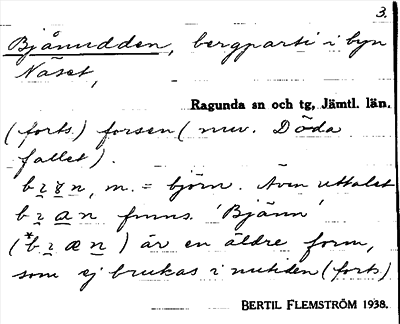 3.
Bjånudden, bergparti i byn
Näset,
Ragunda sn och tg, Jämtl. län.
(forts.) forsen (nuv. Döda
fallet).
bɿɣn, m. = björn. Även uttalet
bɿan finns. 'Bjänn'
(*bɿæn) är en äldre form,
som ej brukas i nutiden (forts)
BERTIL FLEMSTRÖM 1938.